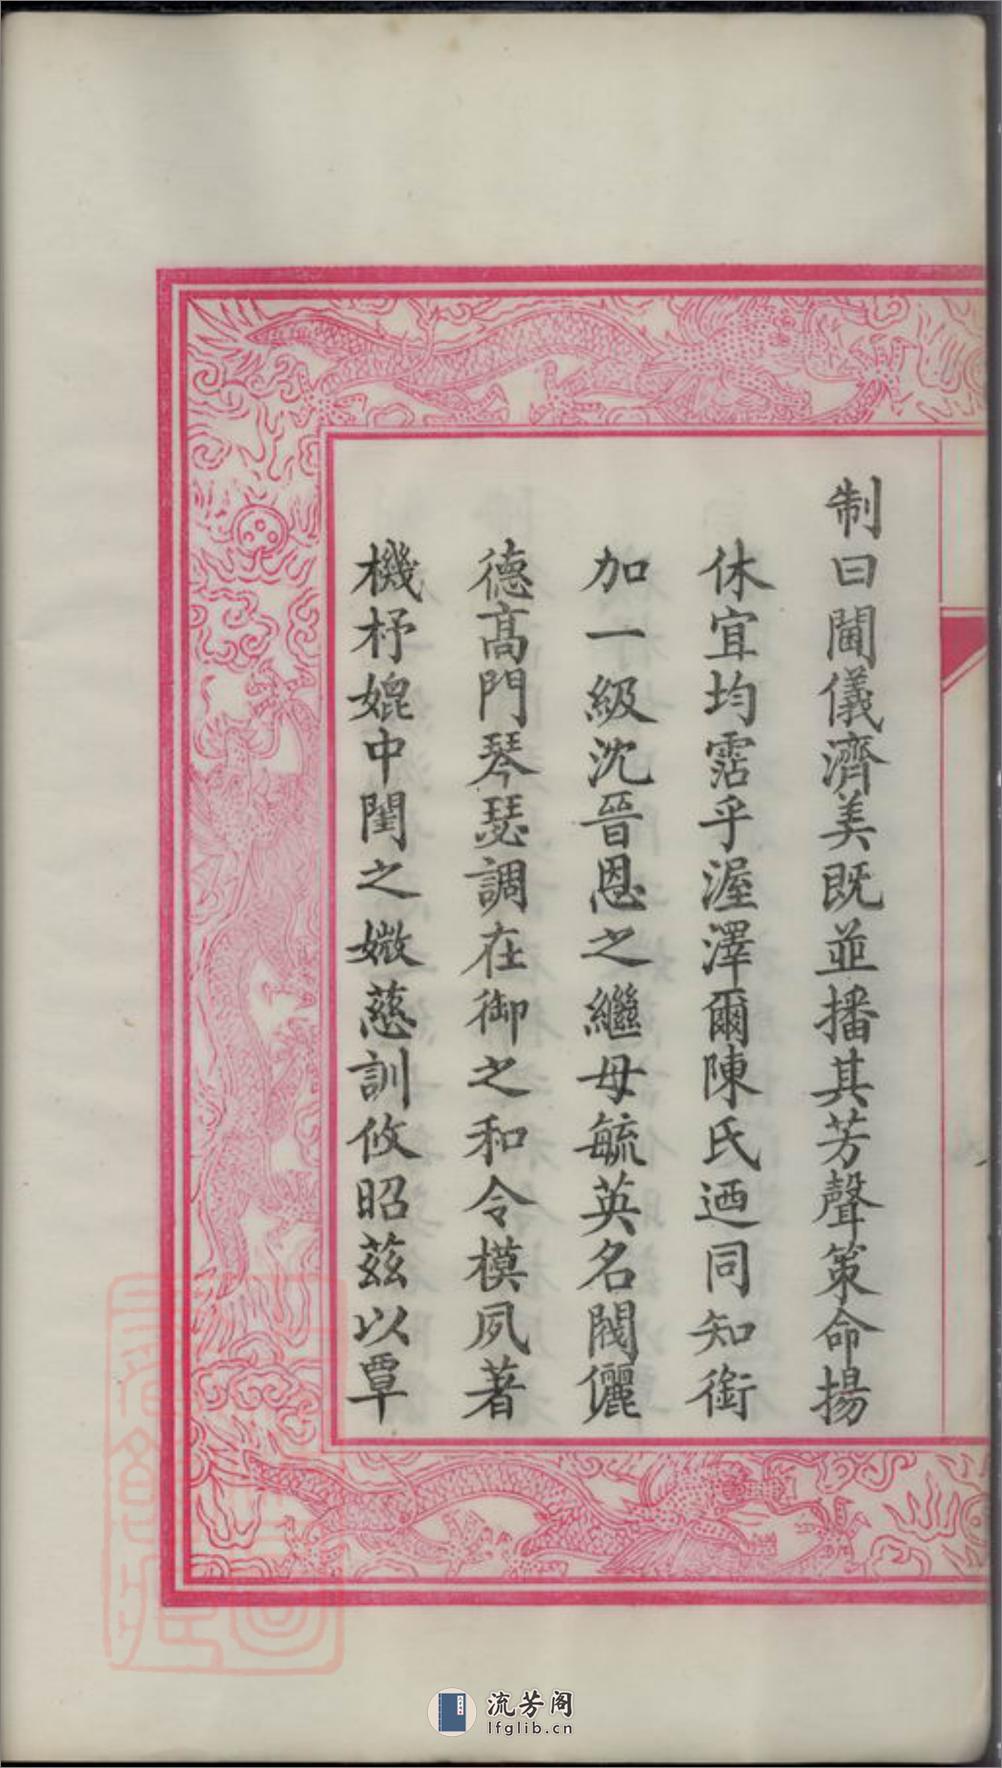 制曰閫儀濟美既並播其芳聲策命揚
休宜均霑乎渥澤爾陳氏迺同知銜
加一級沈晉恩之繼母毓英名閥儷
德高門琴瑟調在御之和令模夙著
機杼媲中閨之媺慈訓攸昭茲以覃
流芳阁
lfglib.cn